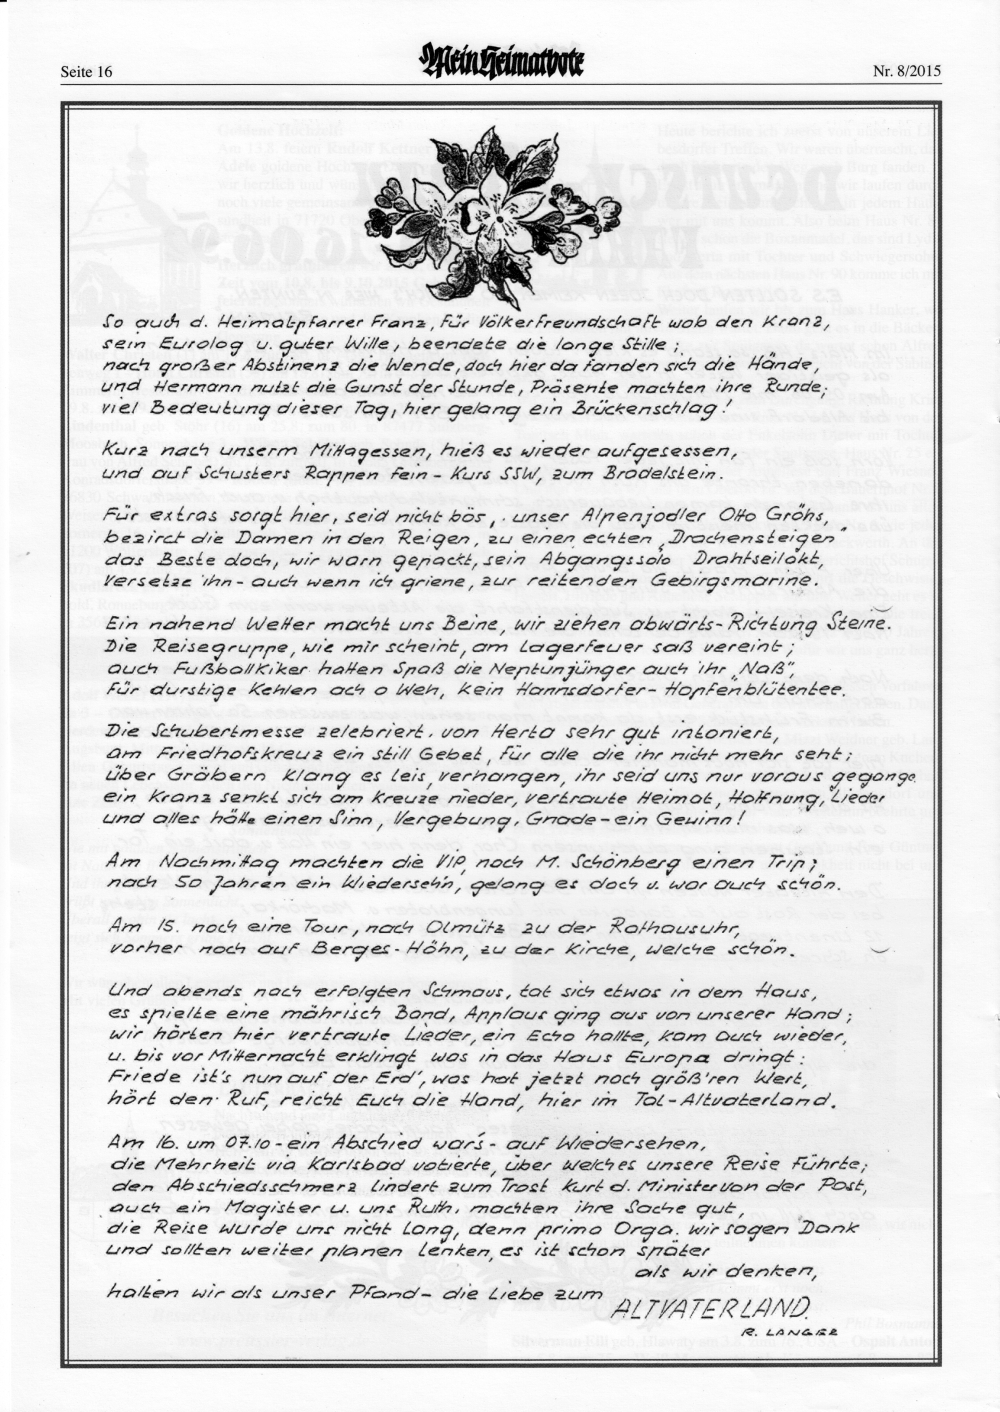 Seite 16
Mein Heimatbote
Nr. 8/2015
So auch d. Heimatpfarrer Franz, für Völkerfreundschaft wob den Kranz,
sein Eurolog u. guter Wille, beendete die lange Stille;
nach großer Abstinenz die Wende, doch hier da fanden sich die Hände,
und Hermann nutzt die Gunst der Stunde, Präsente machten ihre Runde;
viel Bedeutung dieser Tag, hier gelang ein Brückenschlag!
Kurz nach unserm Mittagessen, hieß es wieder aufgesessen,
und auf Schusters Rappen fein - Kurs SSW, zum Bradelstein.
Für extras sorgt hier, seid nicht bös, unser Alpenjodler Otto Gröhs,
bezirct die Damen in den Reigen, zu einen echten „Drachensteigen"
das Beste doch, wir warn gepackt, sein Abgangssolo Drahtseilakt,
versetze ihn - auch wenn ich griene, zur reitenden Gebirgsmarine.
Ein nahend Wetter macht uns Beine, wir ziehen abwärts - Richtung Steine.
Die Reisegruppe, wie mir scheint, am Lagerfeuer saß vereint;
auch Fußballkiker hatten Spaß die Neptunjünger auch ihr „Naß",
für durstige Kehlen ach o Weh, kein Hannsdorfer - Hopfenblütentee.
Die Schubertmesse zelebriert, von Herta sehr gut intoniert,
am Friedhofskreuz ein still Gebet, für alle die ihr nicht mehr seht;
über Gräbern klang es leis, verhangen, ihr seid uns nur voraus gegange.
ein Kranz senkt sich am Kreuze nieder, vertraute Heimat, Hoffnung, Lieder
und alles hätte einen Sinn, Vergebung, Gnade - ein Gewinn!
Am Nachmittag machten die VIP, nach M. Schönberg einen Trip;
nach 50 Jahren ein Wiedersehn, gelang es doch u. war auch schön.
Am 15. noch eine Tour, nach Olmütz zu der Rathausuhr,
vorher noch auf Berges - Höhn, zu der Kirche, welche schön.
Und abends nach erfolgten Schmaus, tat sich etwas in dem Haus,
es spielte eine mährisch Band, Applaus ging aus von unserer Hand;
wir hörten hier vertraute Lieder, ein Echo hallte, kam auch wieder,
u. bis vor Mitternacht erklingt was in das Haus Europa dringt:
Friede ist's nun auf der Erd', was hat jetzt noch größ'ren Wert,
hört den Ruf, reicht Euch die Hand, hier im Tal - Altvaterland.
Am 16. um 07.10 - ein Abschied war's - auf Wiedersehen,
die Mehrheit via Karlsbad votierte, über welches unsere Reise führte;
den Abschiedsschmerz lindert zum Trost Kurt d. Minister von der Post,
auch ein Magister u. uns Ruth, machten ihre Sache gut,
die Reise wurde uns nicht lang, denn prima Orga. wir sagen Dank
und sollten weiter planen lenken, es ist schon später
als wir denken,
halten wir als unser Pfand - die Liebe zum
ALTVATERLAND.
R. LANGER